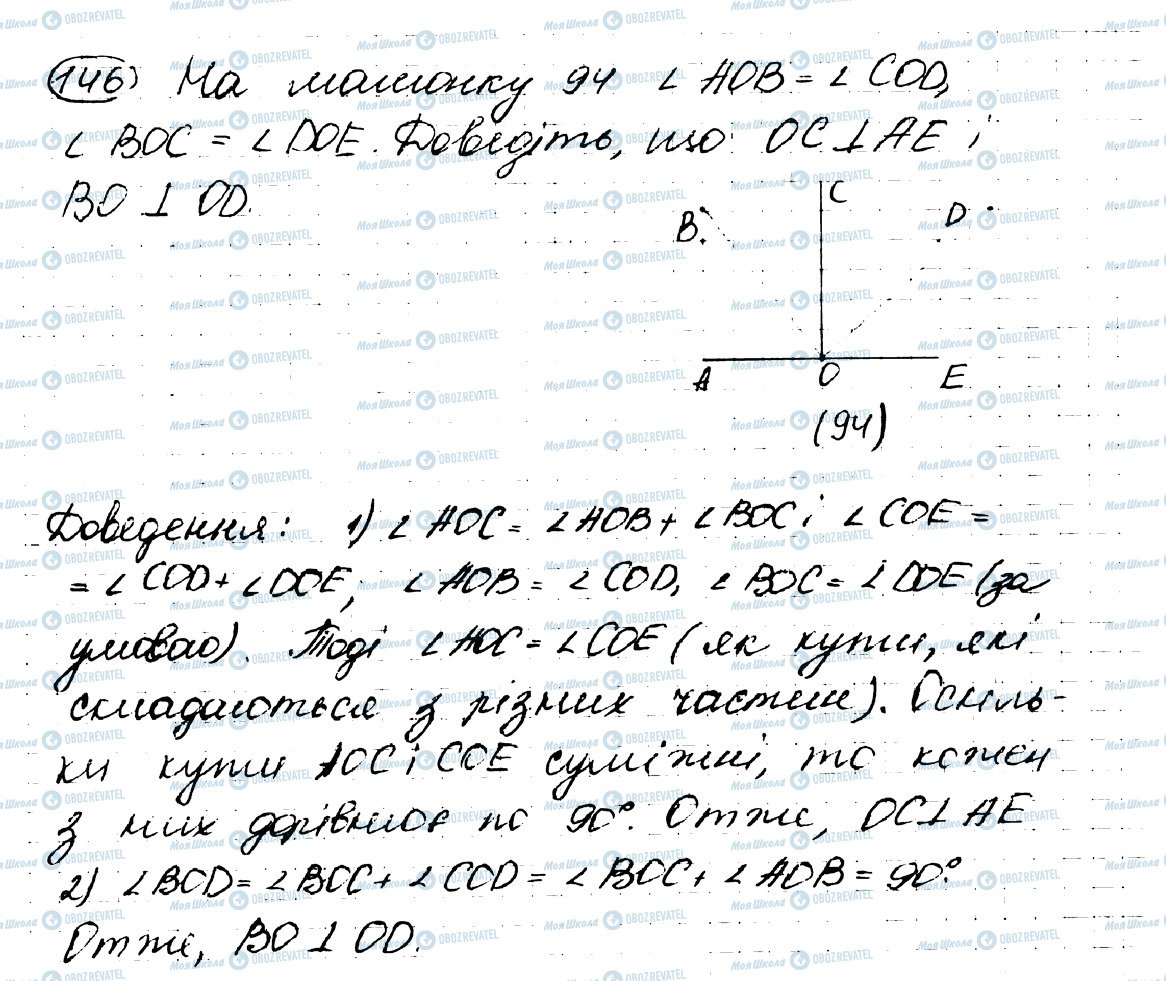 146) На малюнку 94 ∠ AOB = ∠ COD,
∠ BOC = ∠ DOE. Доведіть, що OC ⊥ AE і
BO ⊥ OD.
C
B
D
A
O
E
(94)
Доведення: 1) ∠ AOC = ∠ AOB + ∠ BOC і ∠ COE =
= ∠ COD + ∠ DOE; ∠ AOB = ∠ COD, ∠ BOC = ∠ DOE (за
умовою). Тоді ∠ AOC = ∠ COE (як кути, які
складаються з різних частин). Оскіль-
ки кути AOC і COE суміжні, то кожен
з них дорівнює по 90°. Отже, OC ⊥ AE
2) ∠ BOD = ∠ BOC + ∠ COD = ∠ BOC + ∠ AOB = 90°
Отже, BO ⊥ OD.